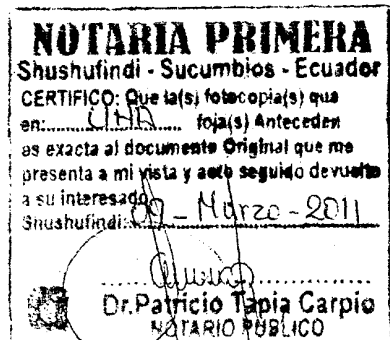 NOTARIA PRIMERA
Shushufindi - Sucumbios - Ecuador
CERTIFICO: Que la(s) fotocopia(s) que
en: UNA foja(s) Anteceden
es exacta al documento Original que me
presenta a mi vista y acto seguido devuelto
a su interesado
Shushufindi: 09 - Marzo - 2011
Dr. Patricio Tapia Carpio
NOTARIO PUBLICO